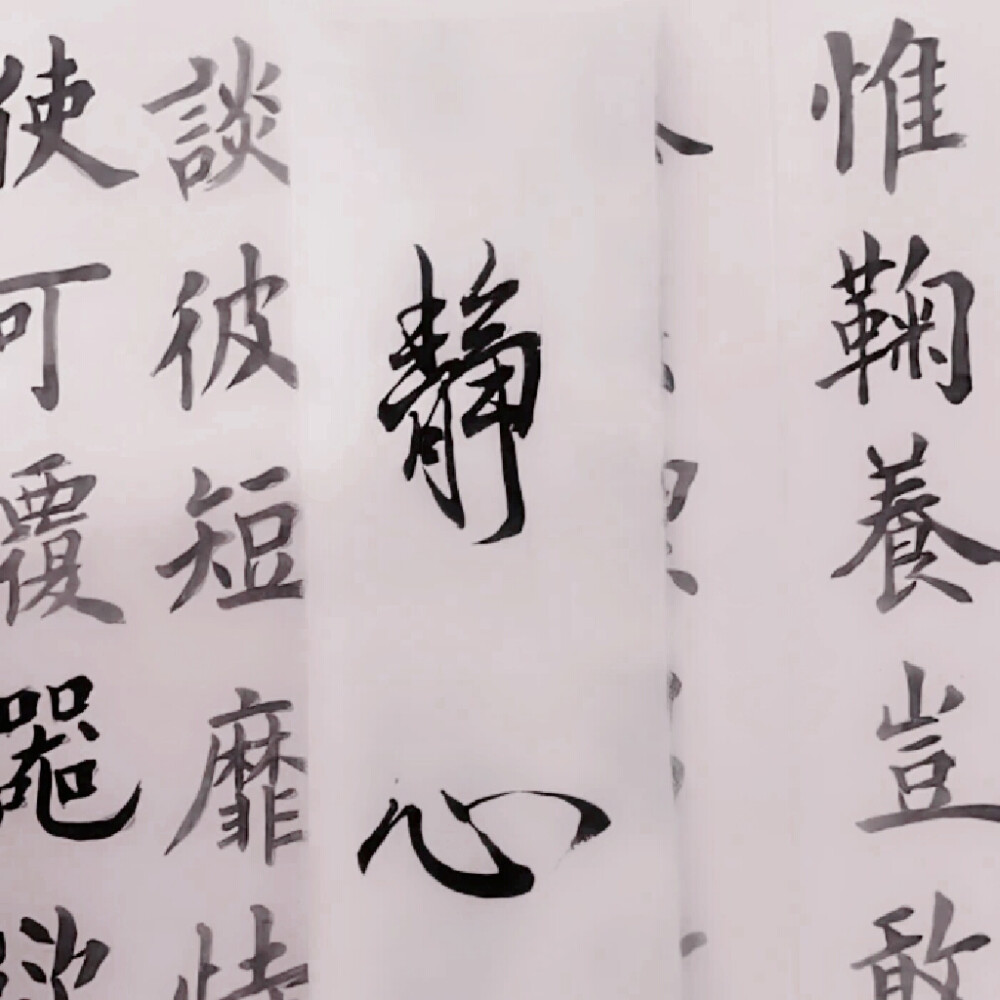 惟鞠養豈敢
静心
談彼短靡恃
使可覆器欲